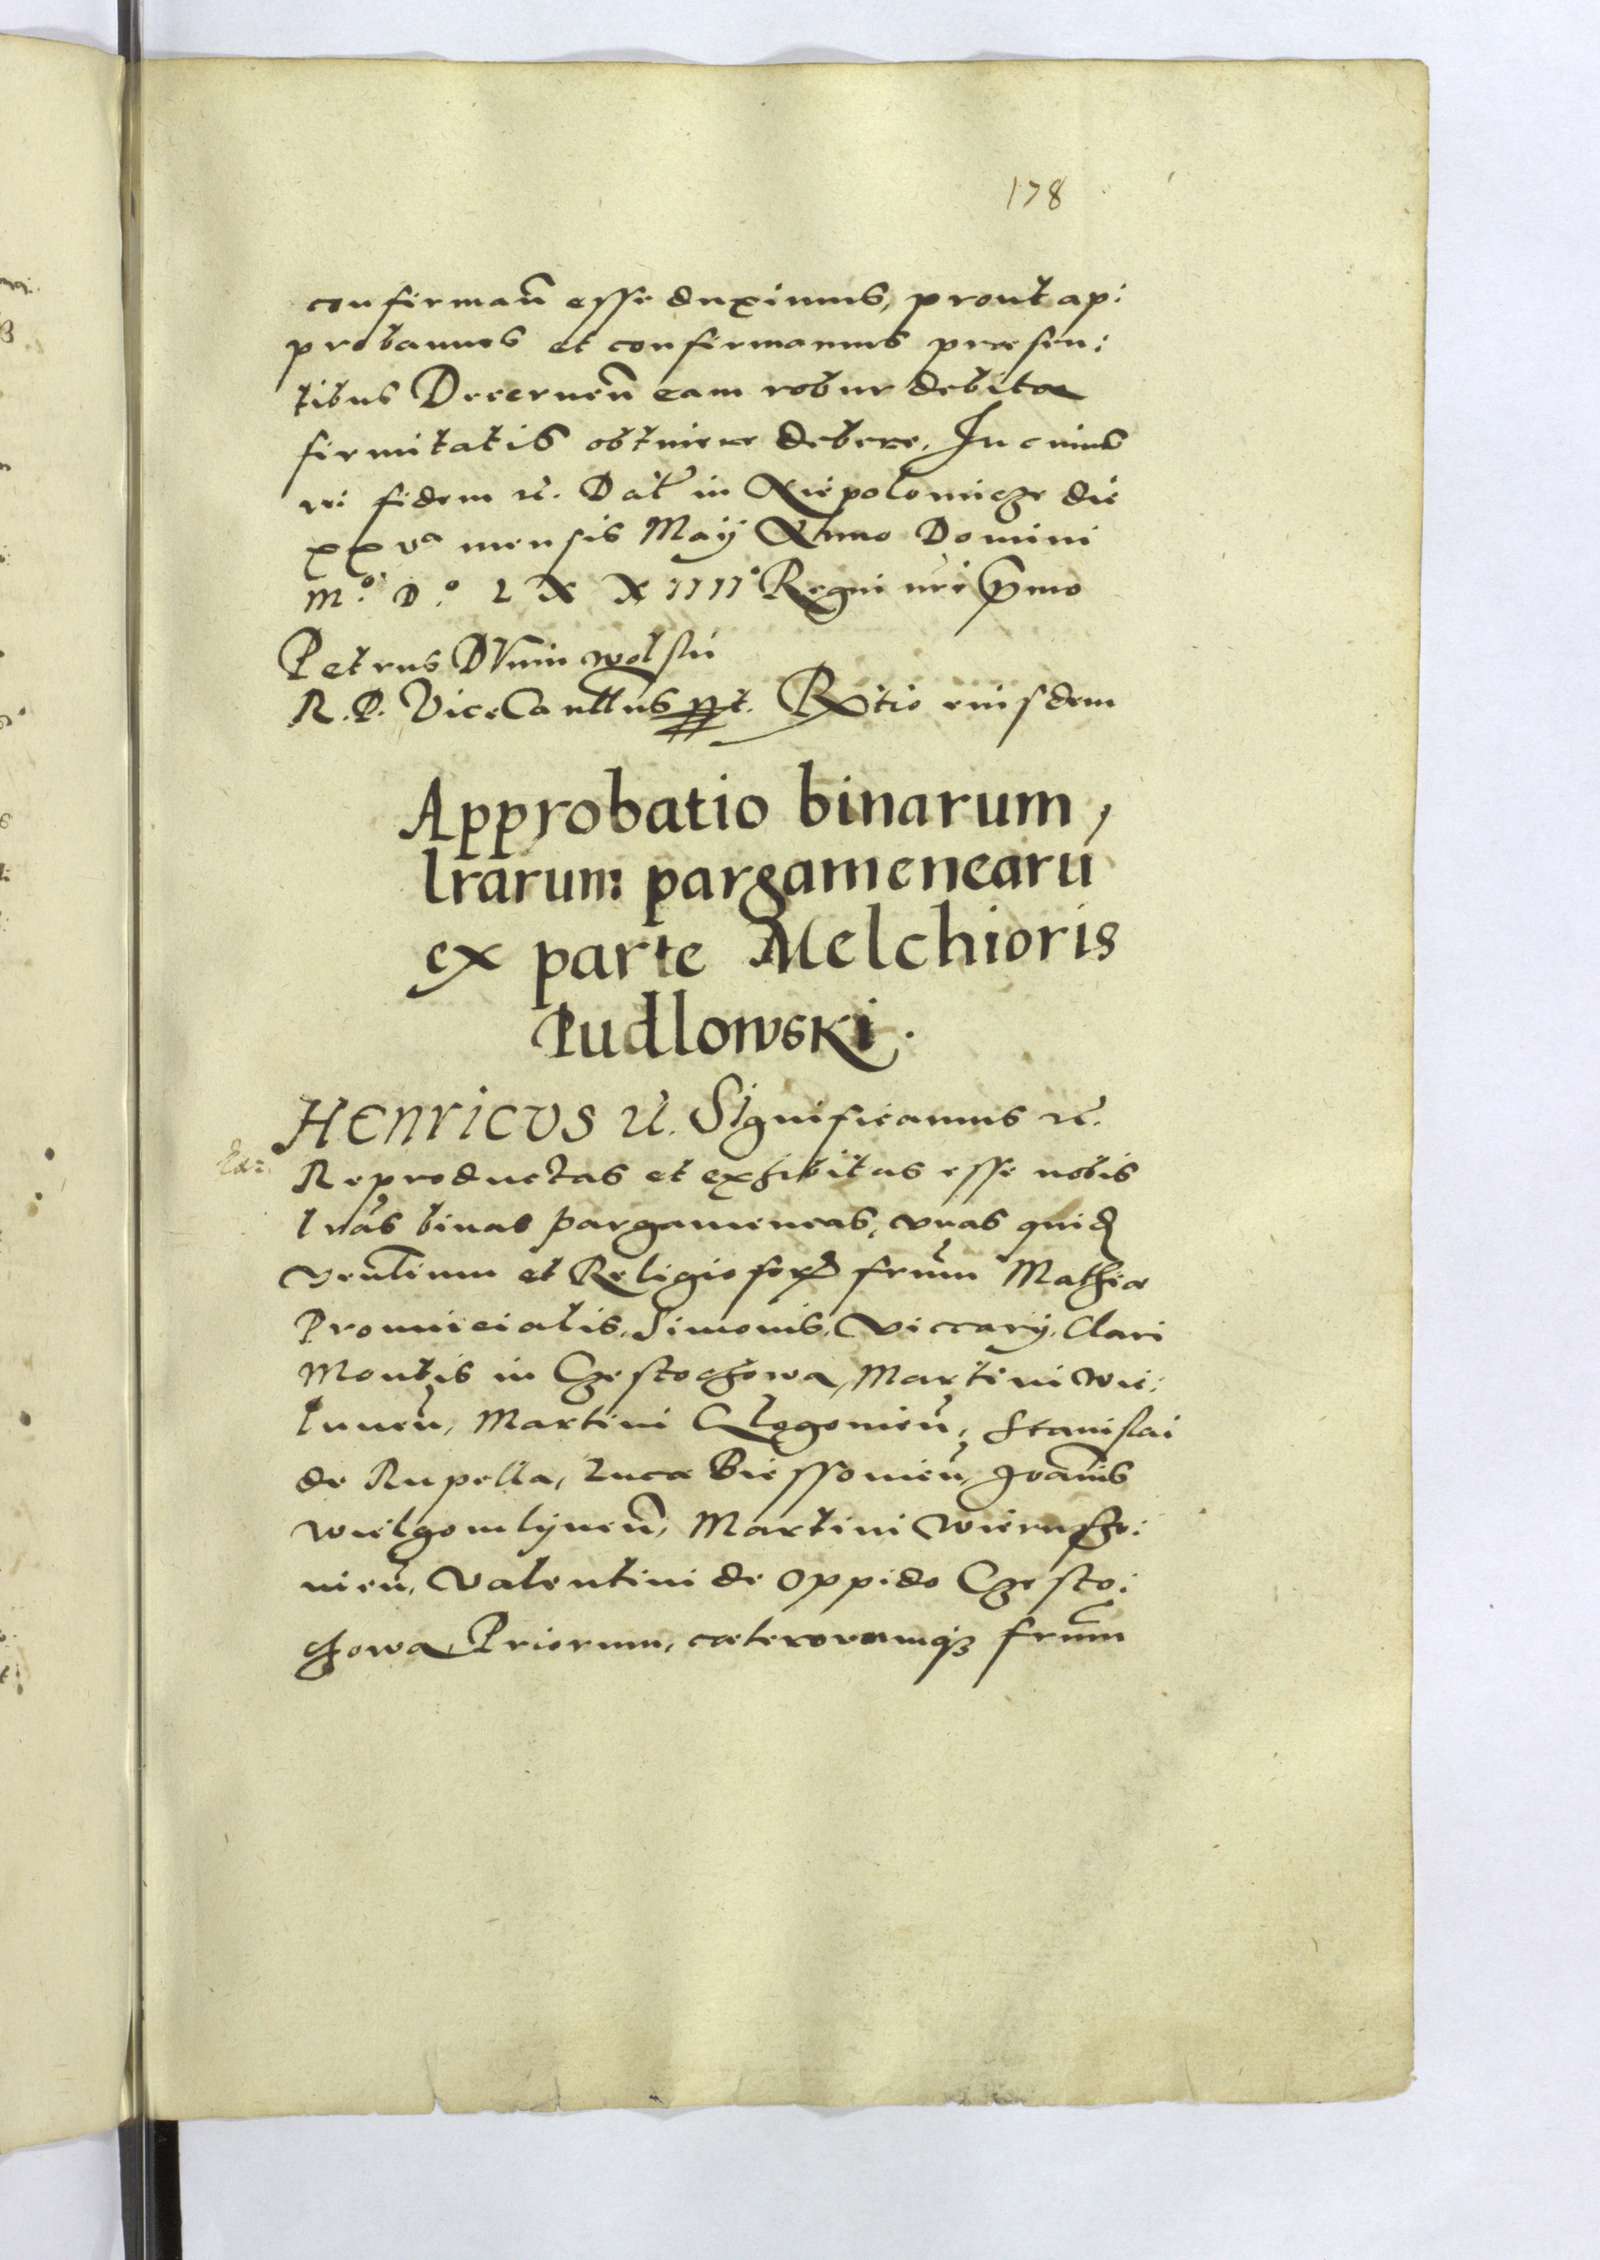 178
confirmañ esse duximus, prout ap:
probamus et confirmamus præsen:
tibus Decerneñ eam robur debitæ
firmitatis obtinere debere. In cuius
rei fidem rc̃. Dat̃ in Niepolomicze die
xxva mensis Maÿ Anno Domini
Mo. Do. LXXIIIIo Regni nr̃i Primo
Petrus DVnin wolski
R. P. ViceCancllrius sst. Rłtio eiusdem
Approbatio binarum,
lrarum pargamenearũ
ex parte Melchioris
Pudlowski.
HENricus rc̃. Significamus rc̃.
Reproductas et exhibitas esse nobis
lrãs binas pargameneas, vnas quid
Venlium et Religiosor frum Mathiæ
Prouincialis, Simonis, Viccarÿ, Clari
Montis in Czestochowa, Martini Wie:
luneñ, Martini Glogouieñ, Stanislai
de Rupella, Lucæ Biessouieñ, Joannis
Wielgomlÿneñ, Martini Wierusho:
uieñ, Valentini de oppido Czesto:
chowa Priorum, cæterorumq frum